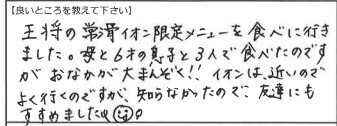 【良いところを教えて下さい】
王将の常滑イオン限定メニューを食べに行き
ました。母と6才の息子と3人で食べたのです
がおなかが大まんぞく!! イオンは、近いので
よく行くのですが、知らなかったので、友達にも
すすめました